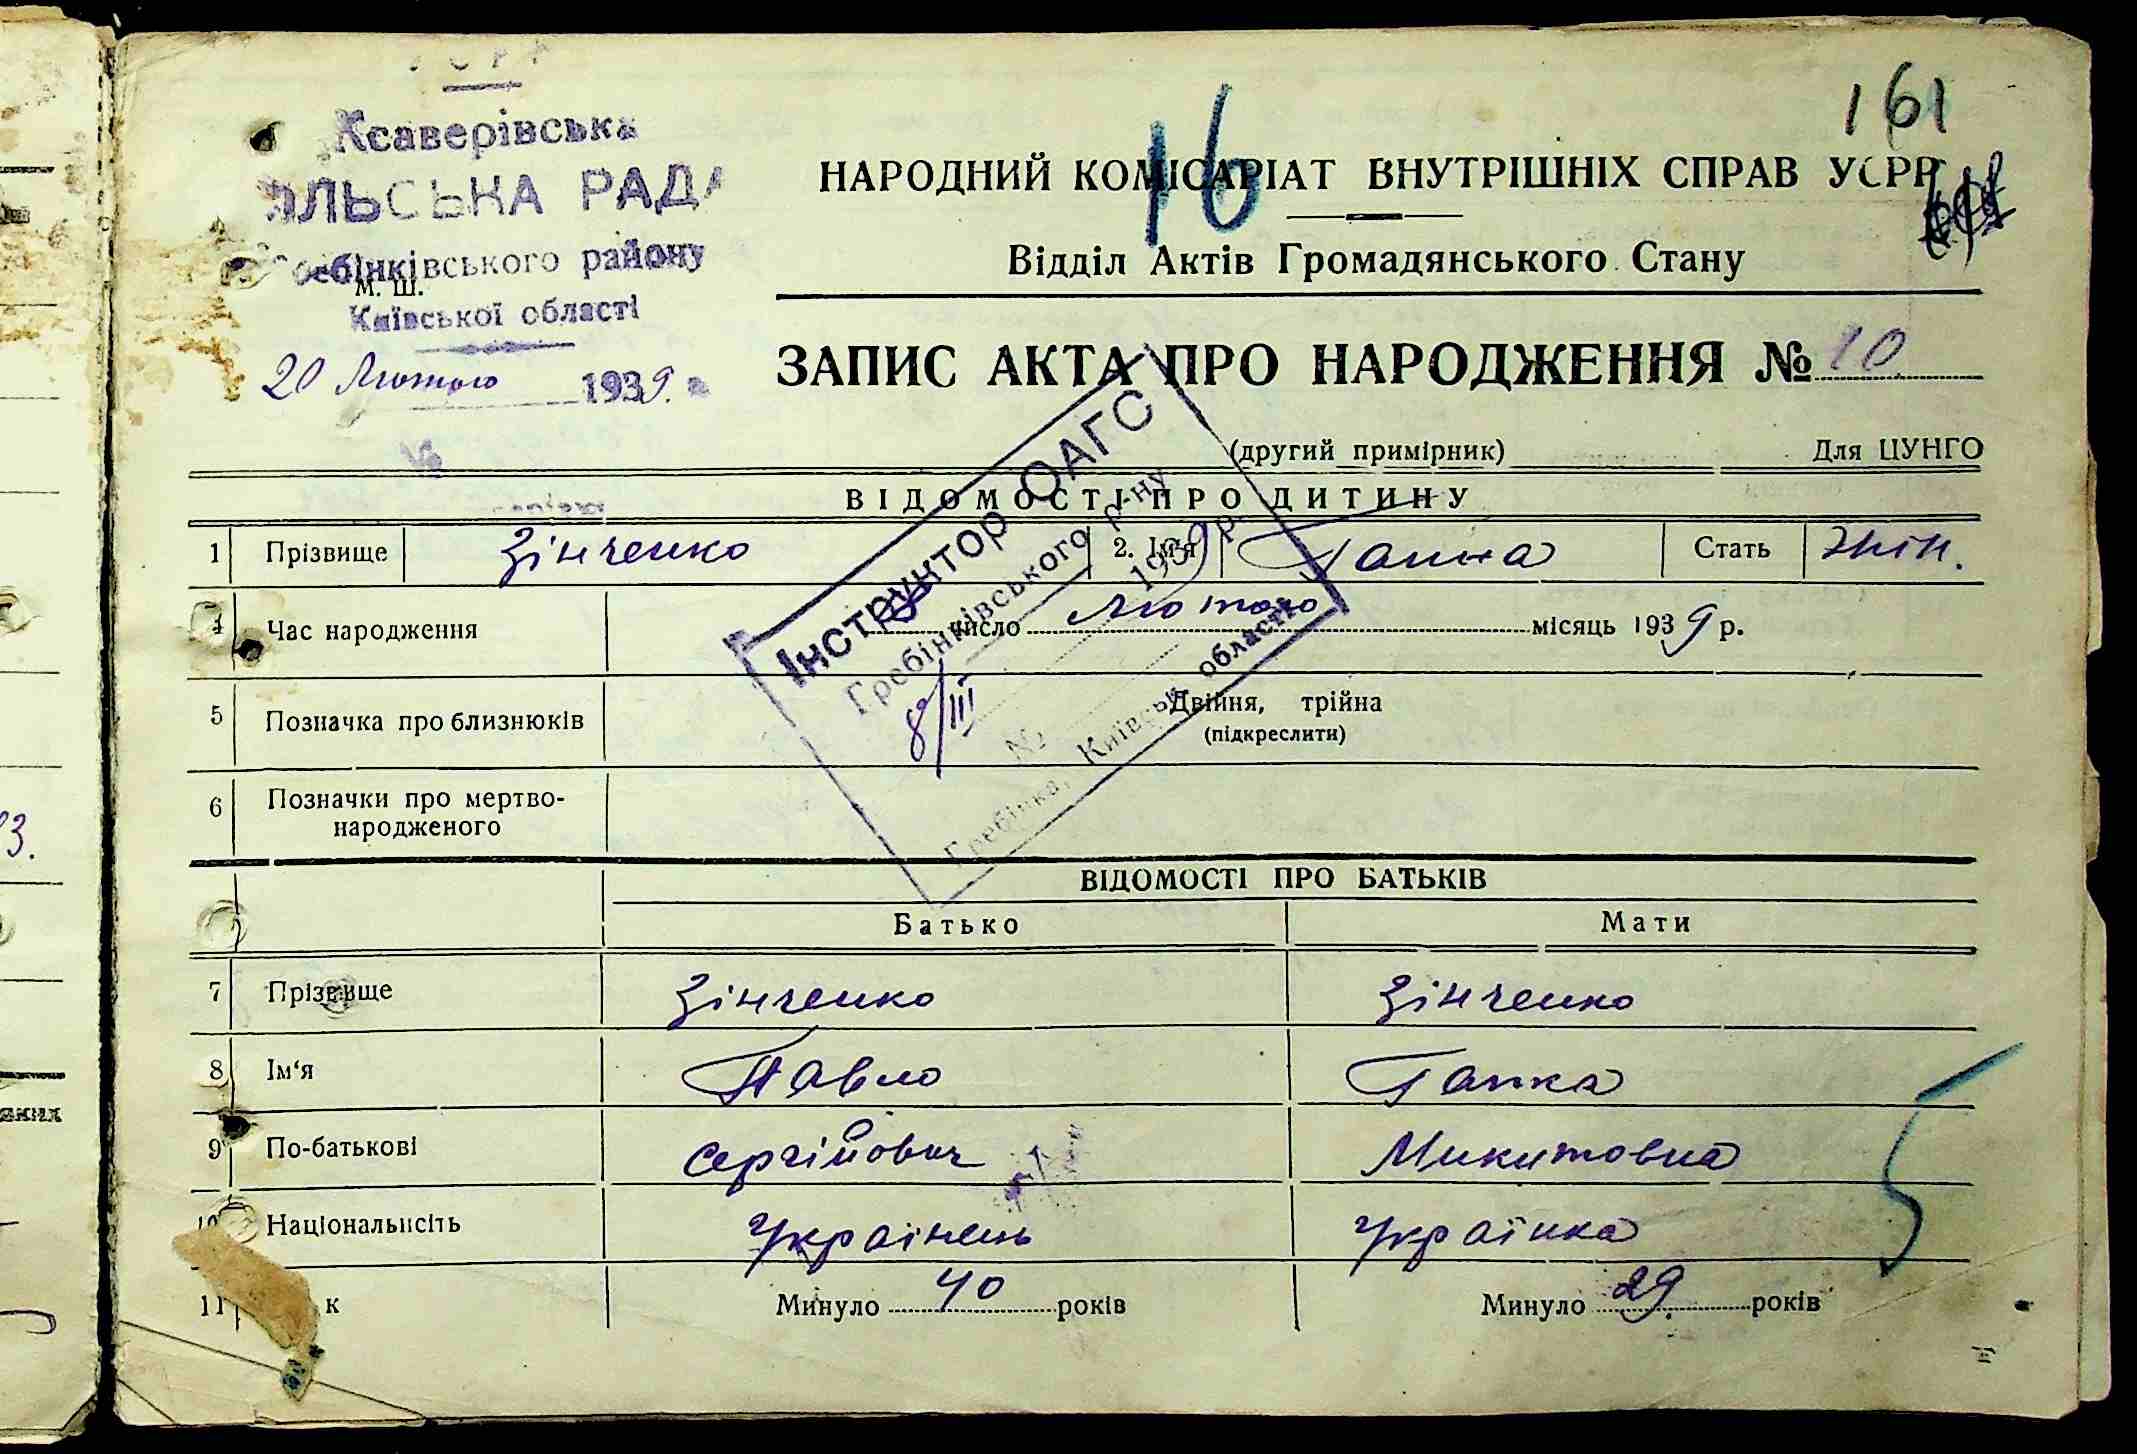 161
16
Ксаверівська
РАДА
Гребінківського району
М. Ш.
Київської області
20 Лютого 1939 р.
НАРОДНИЙ КОМІСАРІАТ ВНУТРІШНІХ СПРАВ УСРР
Відділ Актів Громадянського Стану
ЗАПИС АКТА ПРО НАРОДЖЕННЯ № 10
(другий примірник) Для ЦУНГО
ВІДОМОСТІ ПРО ДИТИНУ
1 Прізвище Зінченко 2. Ім'я Ганна Стать Жін.
4 Час народження число Лютого місяць 1939 р.
5 Позначка про близнюків Двійня, трійна
(підкреслити)
6 Позначки про мертво-
народженого
Інструктор ОАГС
Гребінківського р-ну
8/III 1939 р.
№
Гребінка, Київськ. області
ВІДОМОСТІ ПРО БАТЬКІВ
Батько Мати
7 Прізвище Зінченко Зінченко
8 Ім'я Павло Ганка
9 По-батькові Сергійович Микитовна
10 Національнсіть Українець Українка
11 к Минуло 40 років Минуло 29 років